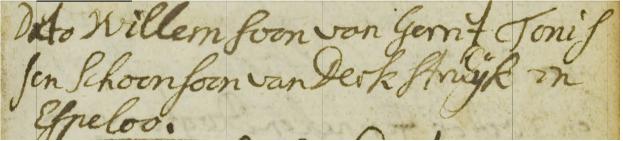 Ditto Willem soon van Gerrit Tonis
sen Schoonsoon van Derk Struÿk in
Espeloo.